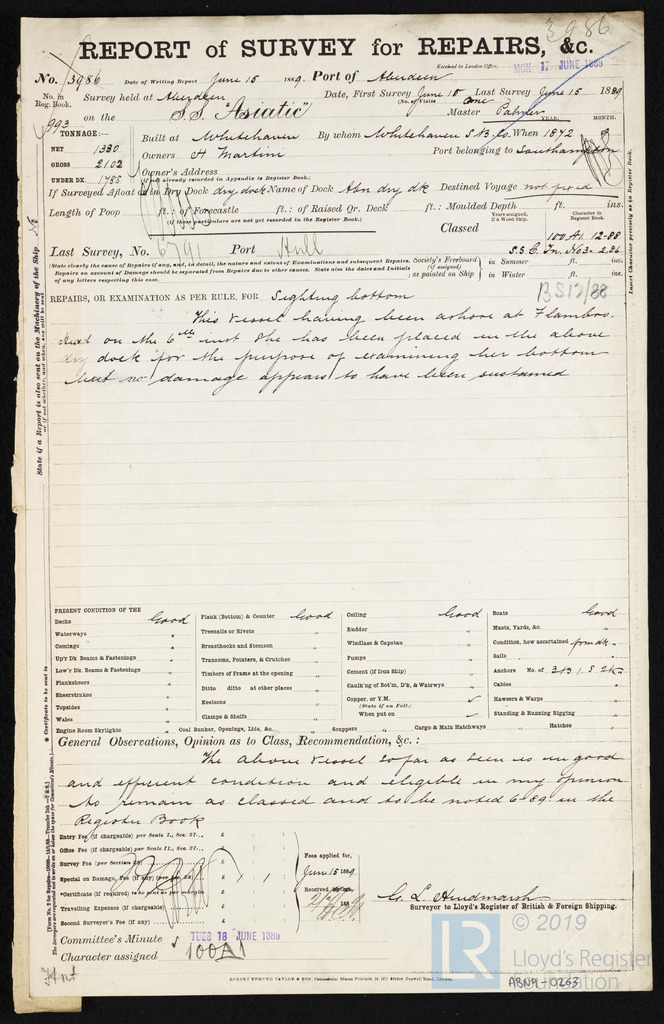 3986
REPORT of SURVEY for REPAIRS, &c.
Received in London Office, MON. 17 JUNE 1889
No. 3986 Date of Writing Report June 15 1889. Port of Aberdeen
No. in Reg. Book. Survey held at Aberdeen Date, First Survey June 10 Last Survey June 15 1889
(No. of Visits one
993 on the S.S. "Asiatic" Master Palmer
TONNAGE:— YEAR. MONTH.
NET 1330 Built at Whitehaven By whom Whitehaven S.B. Co. When 1872 9
GROSS 2102 Owners H Martini Port belonging to Southampton
UNDER DK. 1785 Owner's Address
(if not already recorded in Appendix to Register Book.)
If Surveyed Afloat or in Dry Dock dry dock Name of Dock Abn dry dk Destined Voyage not fixed
Length of Poop ft.: of Forecastle ft.: of Raised Qr. Deck ft.: Moulded Depth ft. ins.
(if these particulars are not yet recorded in the Register Book.)
Years assigned, if a Wood Ship. Character in Register Book.
Classed 100 A1. 12-88
Last Survey, No. 6791 Port Hull S.S. C. Tn. No 3- 2.86
(State clearly the cause of Repairs if any, and, in detail, the nature and extent of Examinations and subsequent Repairs.
Repairs on account of Damage should be separated from Repairs due to other causes. State also the dates and Initials
of any letters respecting this case.
Society's Freeboard (if assigned) as painted on Ship in Summer ft. ins.
in Winter ft. ins.
BS 12/88
REPAIRS, OR EXAMINATION AS PER RULE, FOR Sighting bottom
This vessel having been ashore at Flambro.
Head on the 6th inst she has been placed in the above
dry dock for the purpose of examining her bottom
but no damage appears to have been sustained
State if a Report is also sent on the Machinery of the Ship No
Insert Character precisely as in Register Book.
PRESENT CONDITION OF THE
Decks Good
Waterways "
Comings "
Up'r Dk. Beams & Fastenings "
Low'r Dk. Beams & Fastenings "
Planksheers "
Sheerstrakes "
Topsides "
Wales "
Engine Room Skylights "
Plank (Bottom) & Counter Good
Treenails or Rivets "
Breasthooks and Stemson "
Transoms, Pointers, & Crutches "
Timbers of Frame at the opening "
Ditto ditto at other places "
Keelsons "
Clamps & Shelfs "
Coal Bunker, Openings, Lids, &c. "
Ceiling Good
Rudder "
Windlass & Capstan "
Pumps "
Cement (if Iron Ship) "
Caulk'ng of Bot'm, D'k, & Watrwys "
Copper, or Y.M.
(State if on Felt.)
When put on
Scuppers " Cargo & Main Hatchways "
Boats Good
Masts, Yards, &c. "
Condition, how ascertained from dk
Sails "
Anchors No. of 3 B 1. S 2 K
Cables "
Hawsers & Warps "
Standing & Running Rigging "
Hatches "
General Observations, Opinion as to Class, Recommendation, &c.:
The above vessel so far as seen is in good
and efficient condition and eligible in my opinion
to remain as classed and to be noted 6-89. in the
Register Book
Entry Fee (if chargeable) per Scale I., Sec. 27... £ : :
Office Fee (if chargeable) per Scale II., Sec. 27... £ : :
Survey Fee (per Section 28) £ : :
Special on Damage, Fee (if any) (per Sec. 28) £ 1 : 1 :
*Certificate (if required) to be sent as per margin £ : :
Travelling Expenses (if chargeable) £ : :
Second Surveyor's Fee (if any) £ : :
Fees applied for,
June 15 1889
Received by me,
G. L. Hindmarsh
Surveyor to Lloyd's Register of British & Foreign Shipping.
Committee's Minute TUES 18 JUNE 1889
Character assigned 100A1
* Certificate to be sent to
ROBERT EDMUND TAYLOR & SON, Commercial Steam Printers, 19, Old Street, Goswell Road, London.
LR
© 2019
Lloyd's Register
Foundation
ABN9-0263